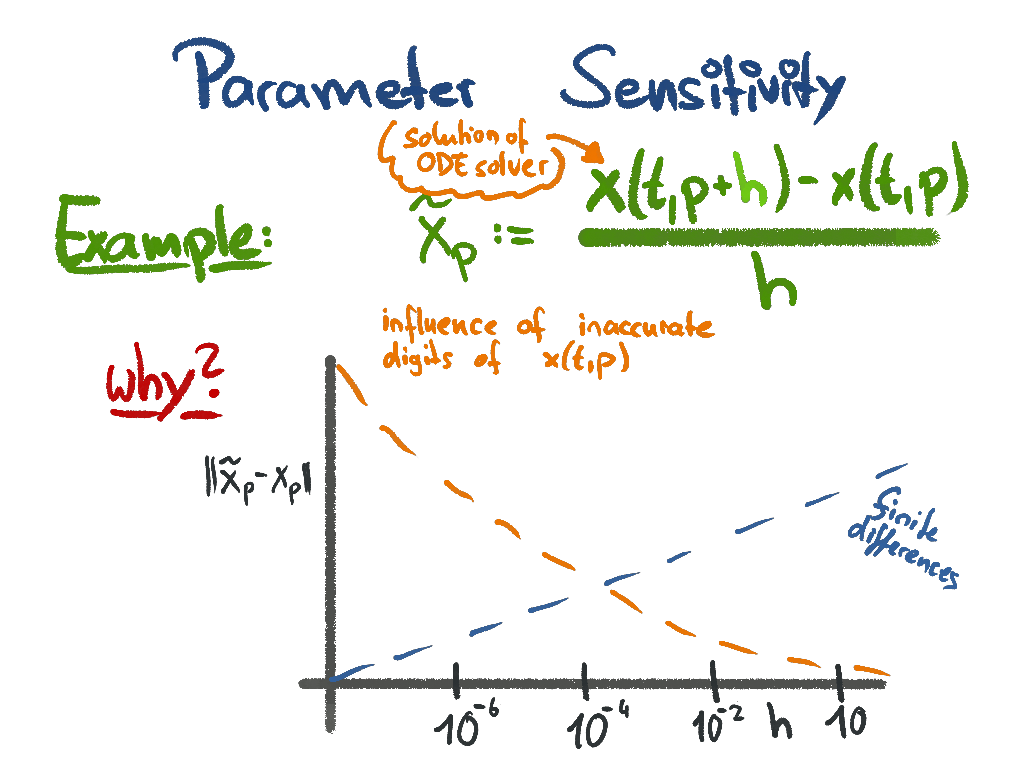 Parameter Sensitivity
(solution of
ODE solver)
Example:
x̃ₚ := x(t,p+h) - x(t,p)
h
influence of inaccurate
digits of x(t,p)
why?
||x̃ₚ - xₚ||
finite
differences
10⁻⁶ 10⁻⁴ 10⁻² h 10